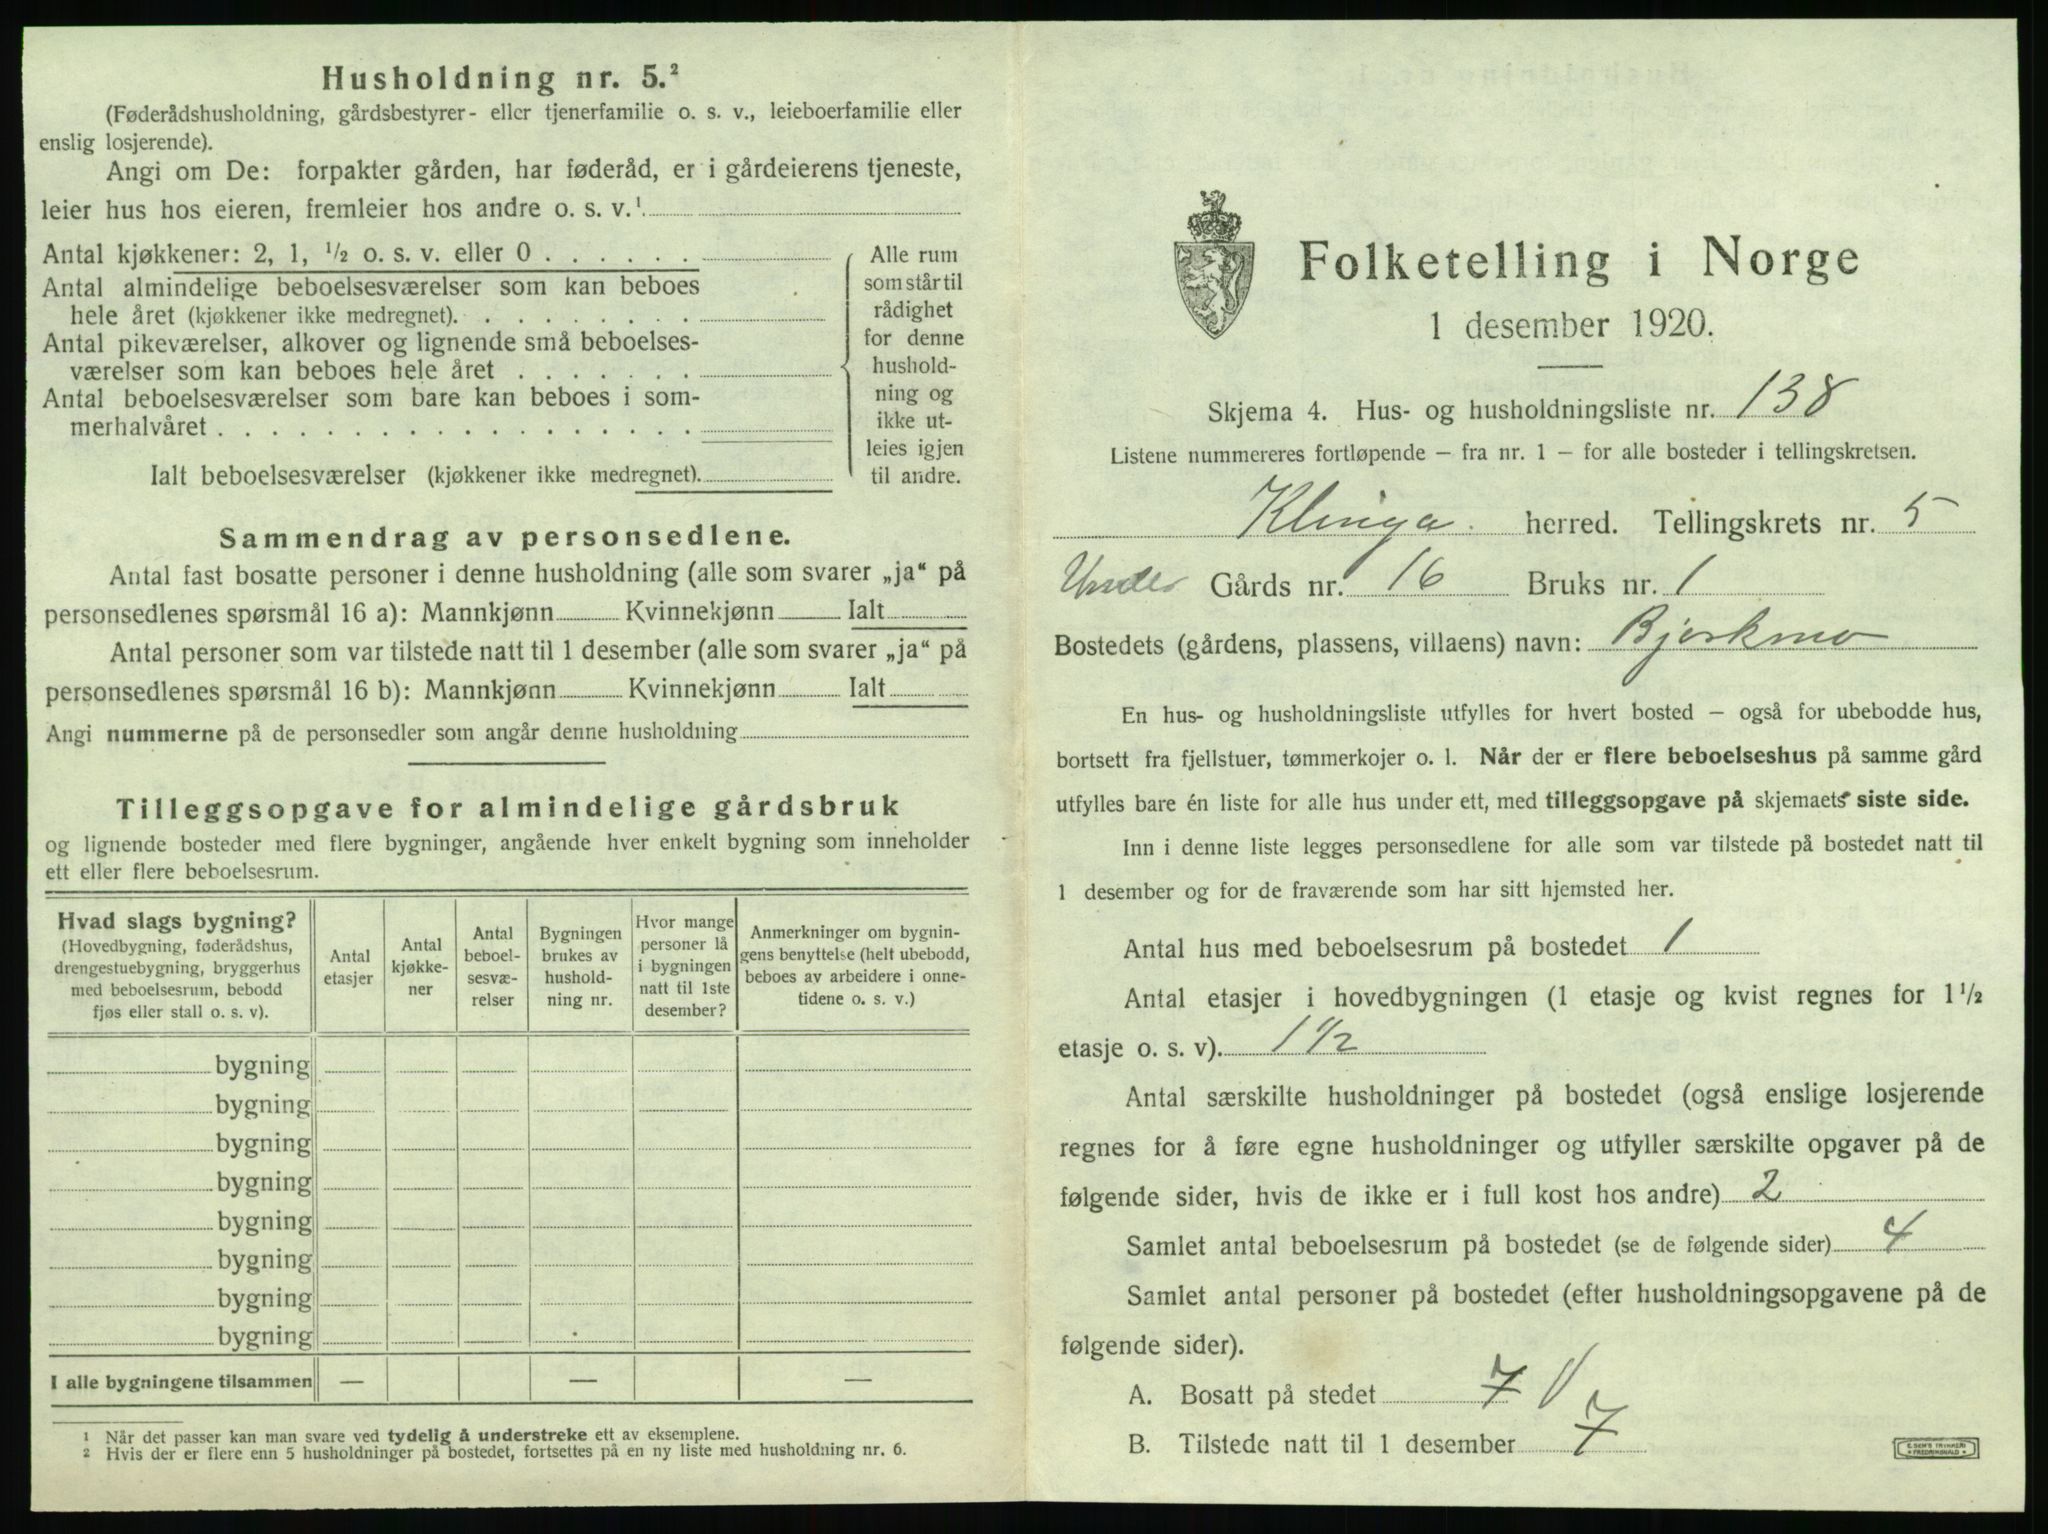 Husholdning nr. 5.²
(Føderådshusholdning, gårdsbestyrer- eller tjenerfamilie o. s. v., leieboerfamilie eller
enslig losjerende).
Angi om De: forpakter gården, har føderåd, er i gårdeierens tjeneste,
leier hus hos eieren, fremleier hos andre o. s. v.¹
Antal kjøkkener: 2, 1, ½ o. s. v. eller 0
Antal almindelige beboelsesværelser som kan beboes
hele året (kjøkkener ikke medregnet).
Antal pikeværelser, alkover og lignende små beboelses-
værelser som kan beboes hele året
Antal beboelsesværelser som bare kan beboes i som-
merhalvåret
Ialt beboelsesværelser (kjøkkener ikke medregnet).
Alle rum
som står til
rådighet
for denne
hushold-
ning og
ikke ut-
leies igjen
til andre.
Sammendrag av personsedlene.
Antal fast bosatte personer i denne husholdning (alle som svarer „ja“ på
personsedlenes spørsmål 16 a): Mannkjønn Kvinnekjønn Ialt
Antal personer som var tilstede natt til 1 desember (alle som svarer „ja“ på
personsedlenes spørsmål 16 b): Mannkjønn Kvinnekjønn Ialt
Angi nummerne på de personsedler som angår denne husholdning
Tilleggsopgave for almindelige gårdsbruk
og lignende bosteder med flere bygninger, angående hver enkelt bygning som inneholder
ett eller flere beboelsesrum.
Hvad slags bygning?
(Hovedbygning, føderådshus,
drengestuebygning, bryggerhus
med beboelsesrum, bebodd
fjøs eller stall o. s. v).
Antal
etasjer
Antal
kjøkke-
ner
Antal
beboel-
sesvæ-
relser
Bygningen
brukes av
hushold-
ning nr.
Hvor mange
personer lå
i bygningen
natt til 1ste
desember?
Anmerkninger om bygnin-
gens benyttelse (helt ubebodd,
beboes av arbeidere i onne-
tidene o. s. v.)
bygning
bygning
bygning
bygning
bygning
bygning
bygning
bygning
I alle bygningene tilsammen — — —
¹ Når det passer kan man svare ved tydelig å understreke ett av eksemplene.
² Hvis der er flere enn 5 husholdninger på bostedet, fortsettes på en ny liste med husholdning nr. 6.
Folketelling i Norge
1 desember 1920.
Skjema 4. Hus- og husholdningsliste nr. 138
Listene nummereres fortløpende – fra nr. 1 – for alle bosteder i tellingskretsen.
Klinga herred. Tellingskrets nr. 5
Under Gårds nr. 16 Bruks nr. 1
Bostedets (gårdens, plassens, villaens) navn: Bjørkmo
En hus- og husholdningsliste utfylles for hvert bosted – også for ubebodde hus,
bortsett fra fjellstuer, tømmerkojer o. l. Når der er flere beboelseshus på samme gård
utfylles bare én liste for alle hus under ett, med tilleggsopgave på skjemaets siste side.
Inn i denne liste legges personsedlene for alle som var tilstede på bostedet natt til
1 desember og for de fraværende som har sitt hjemsted her.
Antal hus med beboelsesrum på bostedet 1
Antal etasjer i hovedbygningen (1 etasje og kvist regnes for 1½
etasje o. s. v). 1 1/2
Antal særskilte husholdninger på bostedet (også enslige losjerende
regnes for å føre egne husholdninger og utfyller særskilte opgaver på de
følgende sider, hvis de ikke er i full kost hos andre) 2
Samlet antal beboelsesrum på bostedet (se de følgende sider) 4
Samlet antal personer på bostedet (efter husholdningsopgavene på de
følgende sider).
A. Bosatt på stedet 7
B. Tilstede natt til 1 desember 7
E. SEM'S TRYKKERI
FREDRIKSHALD